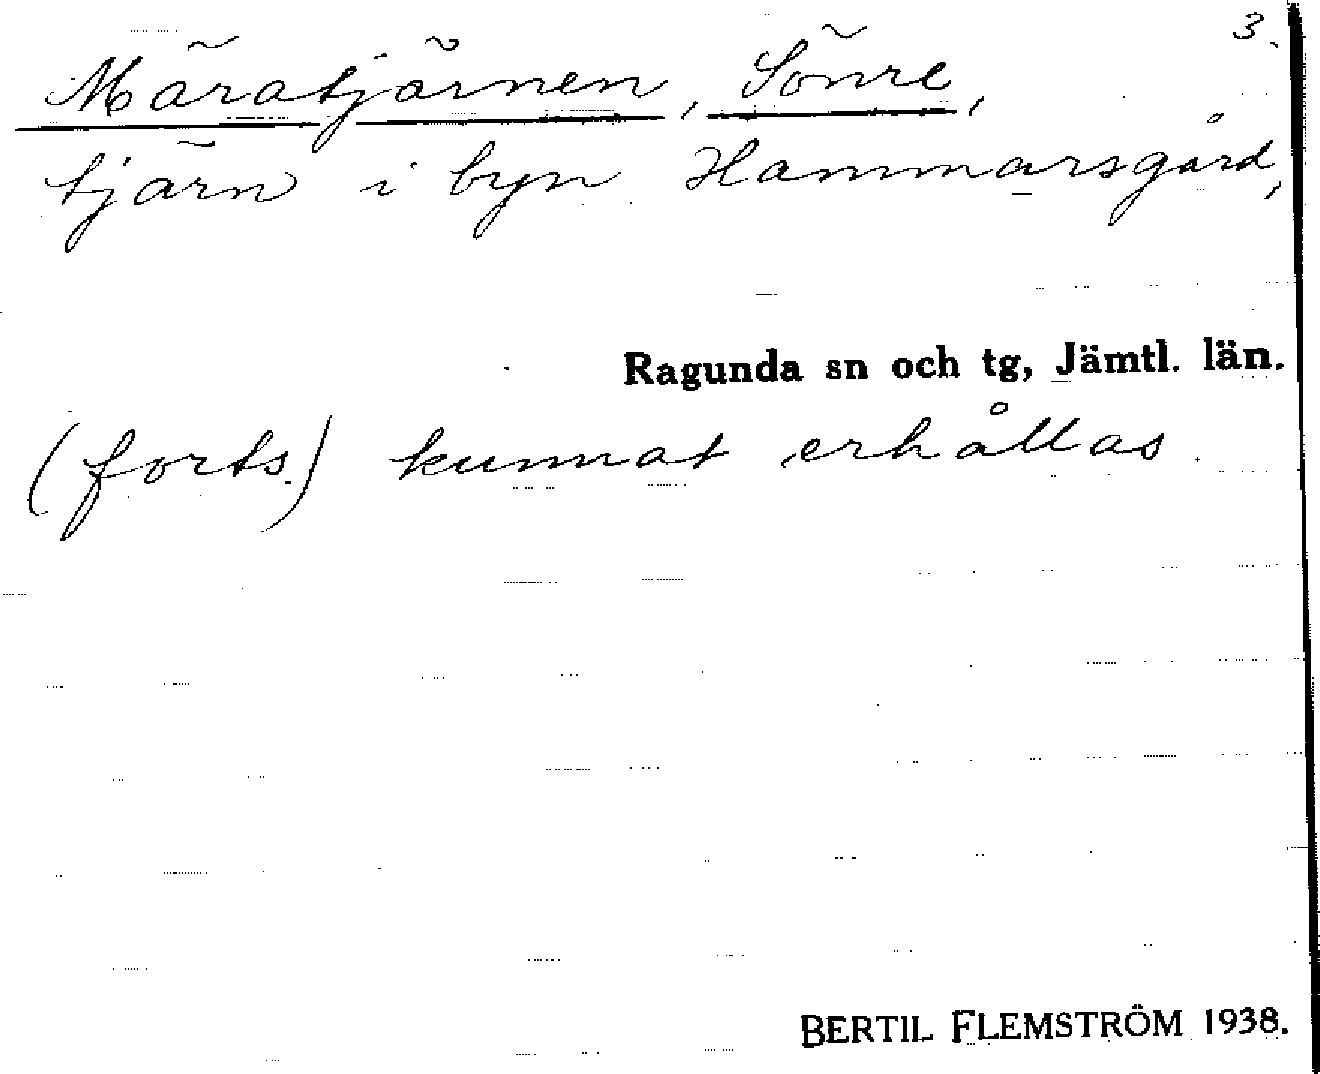 3.
Märatjärnen, Sönre,
tjärn i byn Hammarsgård,
Ragunda sn och tg, Jämtl. län.
(forts.) kunnat erhållas.
BERTIL FLEMSTRÖM 1938.